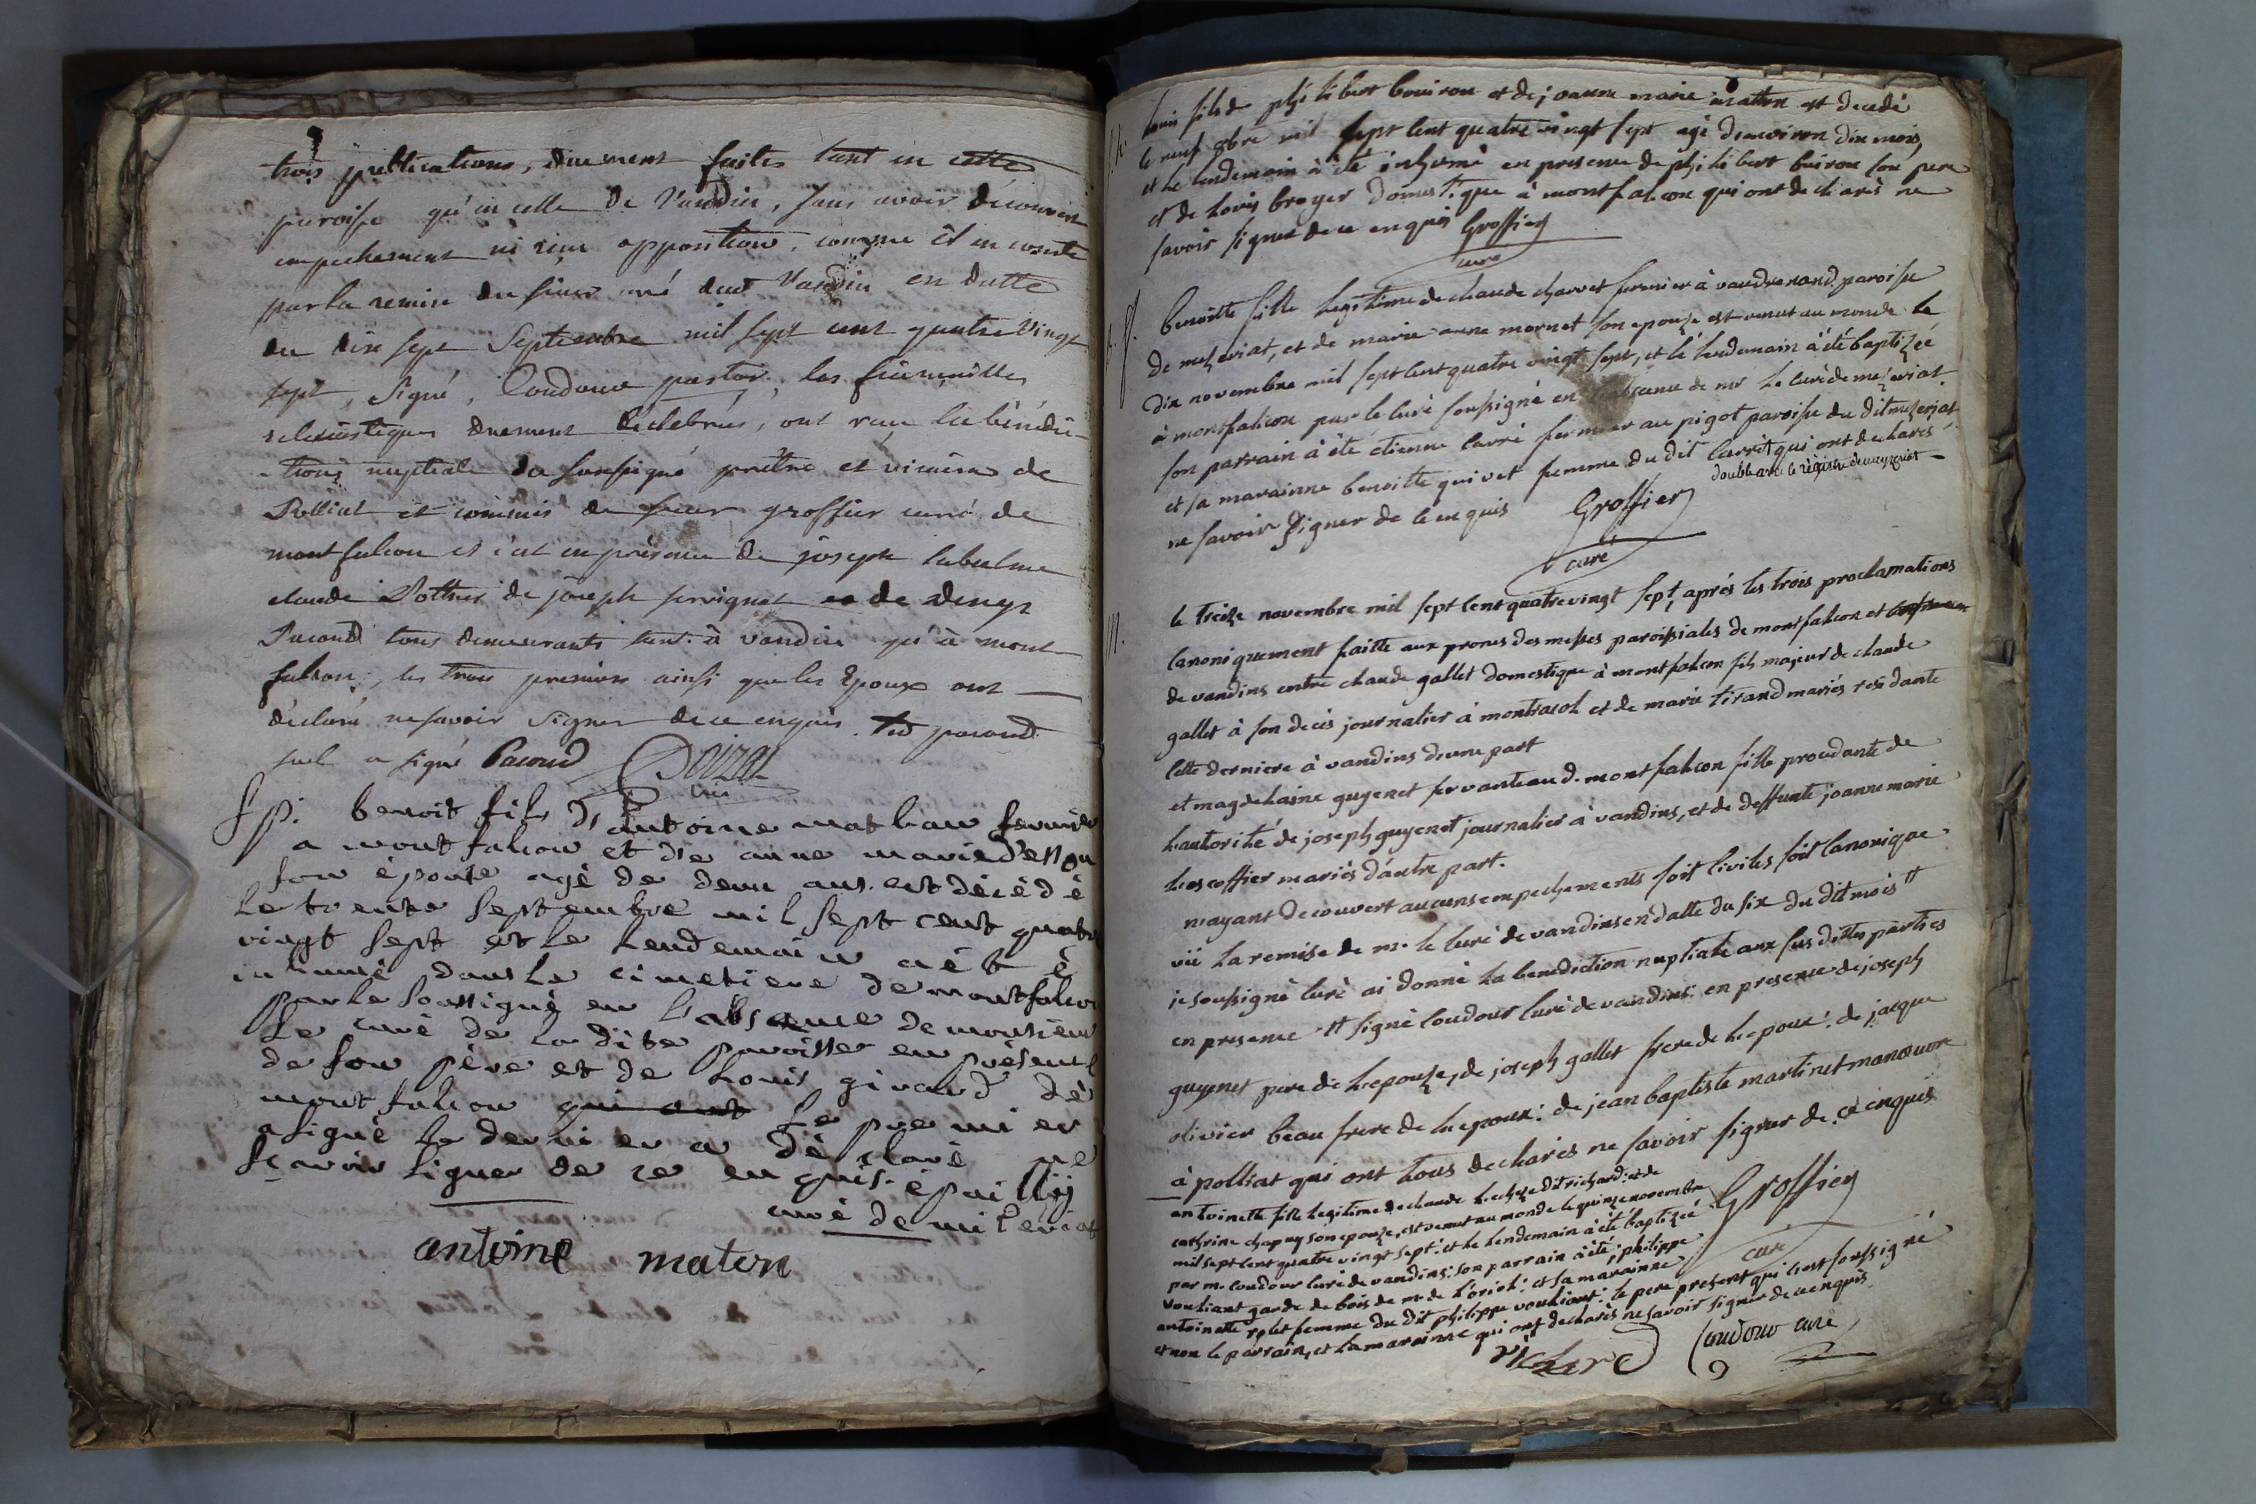 trois publications, duement faites tant en cette
paroisse qu'en celle de Vandin, sans avoir découvert
empechement ni sçeu opposition, comme il en conste
par la remise du sieur curé dud Vandin en datte
du dix sept Septembre mil sept cent quatre vingt
sept, Signé, Coudour pastor, les fiancailles
eclesiastiques duement célebrées, ont reçu la bénédic-
-tion nuptiale du soussigné prêtre et vicaire de
Polliat et commis du sieur groffier curé de
montfalcon et c'est en présence de joseph labalme
claude Pothier de joseph servignat et de Denys
Pacoud tous demeurants tant à vandin qu'à mont
falcon, les trois premiers ainsi que les Epoux ont
déclaré ne savoir signer de ce enquis. led pacoud
seul a signé Pacoud
Sp: benoit fils d'antoine mathieu fermier
a montfalcon et de anne marie
son épouse agé de deux ans est décédé
le trente septembre mil sept cent quatre
vingt sept et le lendemain a été
inhumé dans le cimetiere de montfalcon
par le soussigné en l'absence de monsieur
le curé de la dite paroisse en présence
de son père et de Louis girard de
montfalcon qui ont le premier
a signé le dernier a déclaré ne
sçavoir signer de ce enquis. épailly
curé de mizériat
antoine matern
Louis fils de philibert bouiron et de joanne marie mattre est decedé
le neuf 9bre mil sept cent quatre vingt sept agé d'environ dix mois,
et le lendemain à été inhumé en presence de philibert buiron son pere
et de Louis broyer domestique à montfalcon qui ont declarés ne
savoir signer de ce enquis Groffier
curé
benoitte fille legitime de claude charvet fermier à vaudrenand paroisse
de mezeriat, et de marie anne mornet son epouze est venut au monde le
dix novembre mil sept cent quatre vingt sept, et le lendemain à été baptizée
à montfalcon par le curé soussigné en l'absence de mr le curé de mezeriat.
son parrain à été etienne carré fermier au pigot paroisse du dit mezeriat
et sa marainne benoitte quivet femme du dit carré qui ont declarés
double avec le régistre de mezeriat
ne savoir signer de ce enquis Groffier
curé
le treize novembre mil sept cent quatre vingt sept, aprés les trois proclamations
canoniquement faitte aux prones des messes paroissiales de montfalcon et
de vandins entre claude gallet domestique à montfalcon fils majeur de claude
gallet à son decès journalier à montracol et de marie tirand mariés residante
cette derniere à vandins d'une part
et magdelaine guyenet servante aud. montfalcon fille procedante de
l'autorité de joseph guyenet journalier à vandins, et de deffunte joanne marie
lescoffier mariés d'autre part.
n'ayant decouvert aucuns empechements soit civiles soit canonique
vü la remise de mr. le curé de vandins en datte du six du dit mois #
je soussigné curé ai donné la benediction nuptiale aux sus dittes parties
en presence # signé coudour curé de vandins: en presence de joseph
guyenet pere de l'epouze, de joseph gallet frere de l'epoux: de jacque
olivier beau frere de l'epoux: de jean baptiste martinet manœuvre
à polliat qui ont tous declarés ne savoir signer de ce enquis
Groffier
curé
antoinette fille legitime de claude lechere dit richard: et de
catherine chapuy son epouze, est venut au monde le quinze novembre
mil sept cent quatre vingt sept: et le lendemain à été baptizée
par mr coudour curé de vandins: son parrain à été philippe
vouliant garde de bois de mr de loriol: et sa marainne
antoinette rplet femme du dit philippe vouliant: le pere present qui c'est soussigné
et non le parrain, et la marainne qui ont declarés ne savoir signer de ce enquis
richard Coudour curé